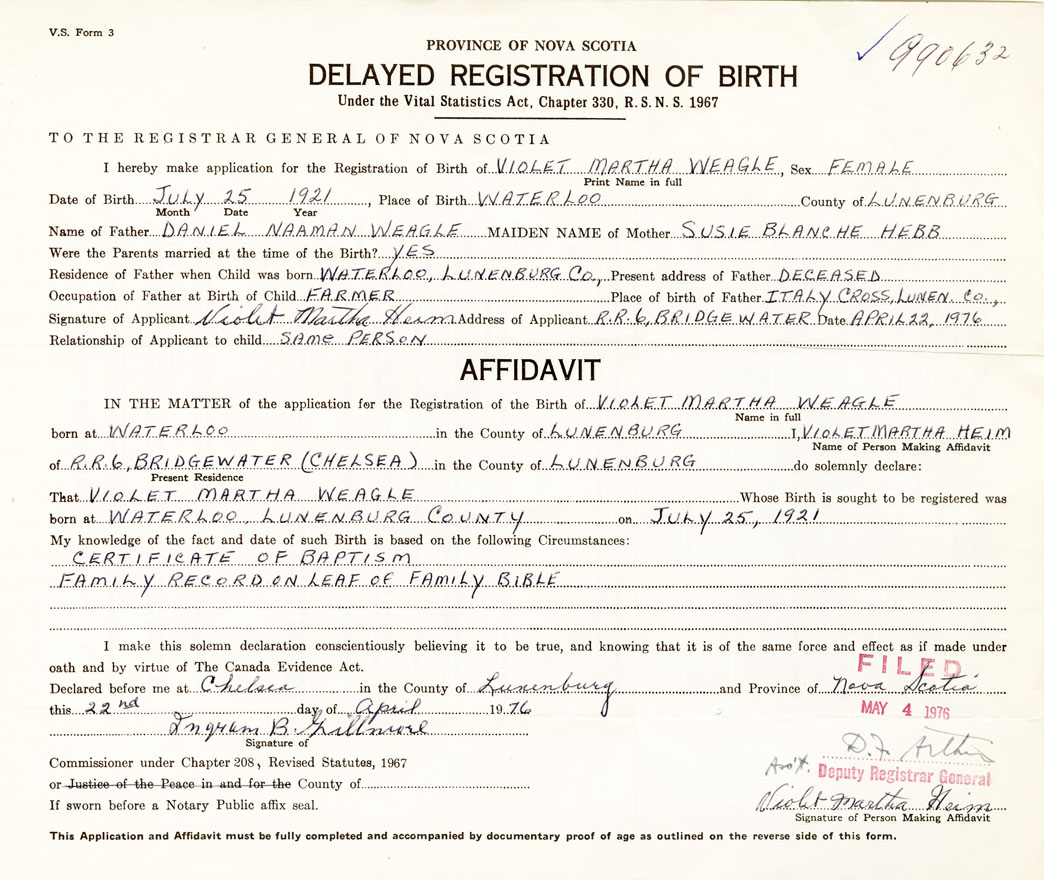 V.S. Form 3
990632
PROVINCE OF NOVA SCOTIA
DELAYED REGISTRATION OF BIRTH
Under the Vital Statistics Act, Chapter 330, R.S.N.S. 1967
TO THE REGISTRAR GENERAL OF NOVA SCOTIA
I hereby make application for the Registration of Birth of VIOLET MARTHA WEAGLE, Sex FEMALE
Print Name in full
Date of Birth JULY 25 1921, Place of Birth WATERLOO County of LUNENBURG
Month Date Year
Name of Father DANIEL NAAMAN WEAGLE MAIDEN NAME of Mother SUSIE BLANCHE HEBB
Were the Parents married at the time of the Birth? YES
Residence of Father when Child was born WATERLOO, LUNENBURG CO., Present address of Father DECEASED
Occupation of Father at Birth of Child FARMER Place of birth of Father ITALY CROSS, LUNEN. CO.,
Signature of Applicant Violet Martha Heim Address of Applicant R.R.6, BRIDGEWATER Date APRIL 22, 1976
Relationship of Applicant to child SAME PERSON
AFFIDAVIT
IN THE MATTER of the application for the Registration of the Birth of VIOLET MARTHA WEAGLE
Name in full
born at WATERLOO in the County of LUNENBURG I, VIOLET MARTHA HEIM
Name of Person Making Affidavit
of R.R.6, BRIDGEWATER (CHELSEA) in the County of LUNENBURG do solemnly declare:
Present Residence
That VIOLET MARTHA WEAGLE Whose Birth is sought to be registered was
born at WATERLOO, LUNENBURG COUNTY on JULY 25, 1921
My knowledge of the fact and date of such Birth is based on the following Circumstances:
CERTIFICATE OF BAPTISM
FAMILY RECORD ON LEAF OF FAMILY BIBLE
I make this solemn declaration conscientiously believing it to be true, and knowing that it is of the same force and effect as if made under
oath and by virtue of The Canada Evidence Act.
FILED
Declared before me at Chelsea in the County of Lunenburg and Province of Nova Scotia
this 22nd day of April 1976
MAY 4 1976
Ingram B. Gillmore
Signature of
D.F. Arthur
Commissioner under Chapter 208, Revised Statutes, 1967
Ass't. Deputy Registrar General
or Justice of the Peace in and for the County of
Violet Martha Heim
If sworn before a Notary Public affix seal.
Signature of Person Making Affidavit
This Application and Affidavit must be fully completed and accompanied by documentary proof of age as outlined on the reverse side of this form.